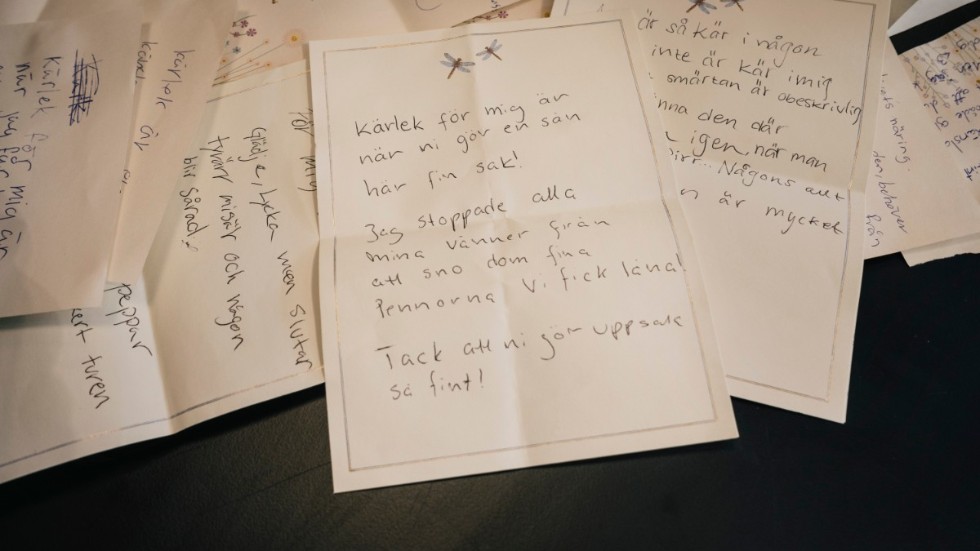 Kärlek för mig är
när ni gör en sån
här fin sak!
Jag stoppade alla
mina vänner från
att sno dom fina
Pennorna Vi fick låna!
Tack att ni gör uppsala
så fint!
är så kär i någon
inte är kär i mig
smärtan är obeskrivlig
den där
igen, när man
Någons allt
är mycket
näring.
från
Glädje, lycka men slutar
tyvärr misär och någon
blir sårad
peppar
turen
kärlek är
Kärlek för mig är
när jag får